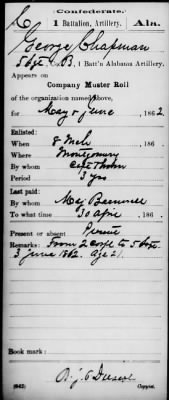 C
Confederate.
1 Battalion, Artillery.
Ala.
George Chapman
Co. B, 1 Batt'n Alabama Artillery.
Appears on
Company Muster Roll
of the organization named above,
for May & June, 1862.
Enlisted:
When 8 Mch, 186 .
Where Montgomery
By whom
Period 3 yrs
Last paid:
By whom Maj
To what time 30 April, 186 .
Present or absent Present
Remarks: From 2 Corpl to 5
3 June 1862. Age 21.
Book mark:
(642)
Copyist.